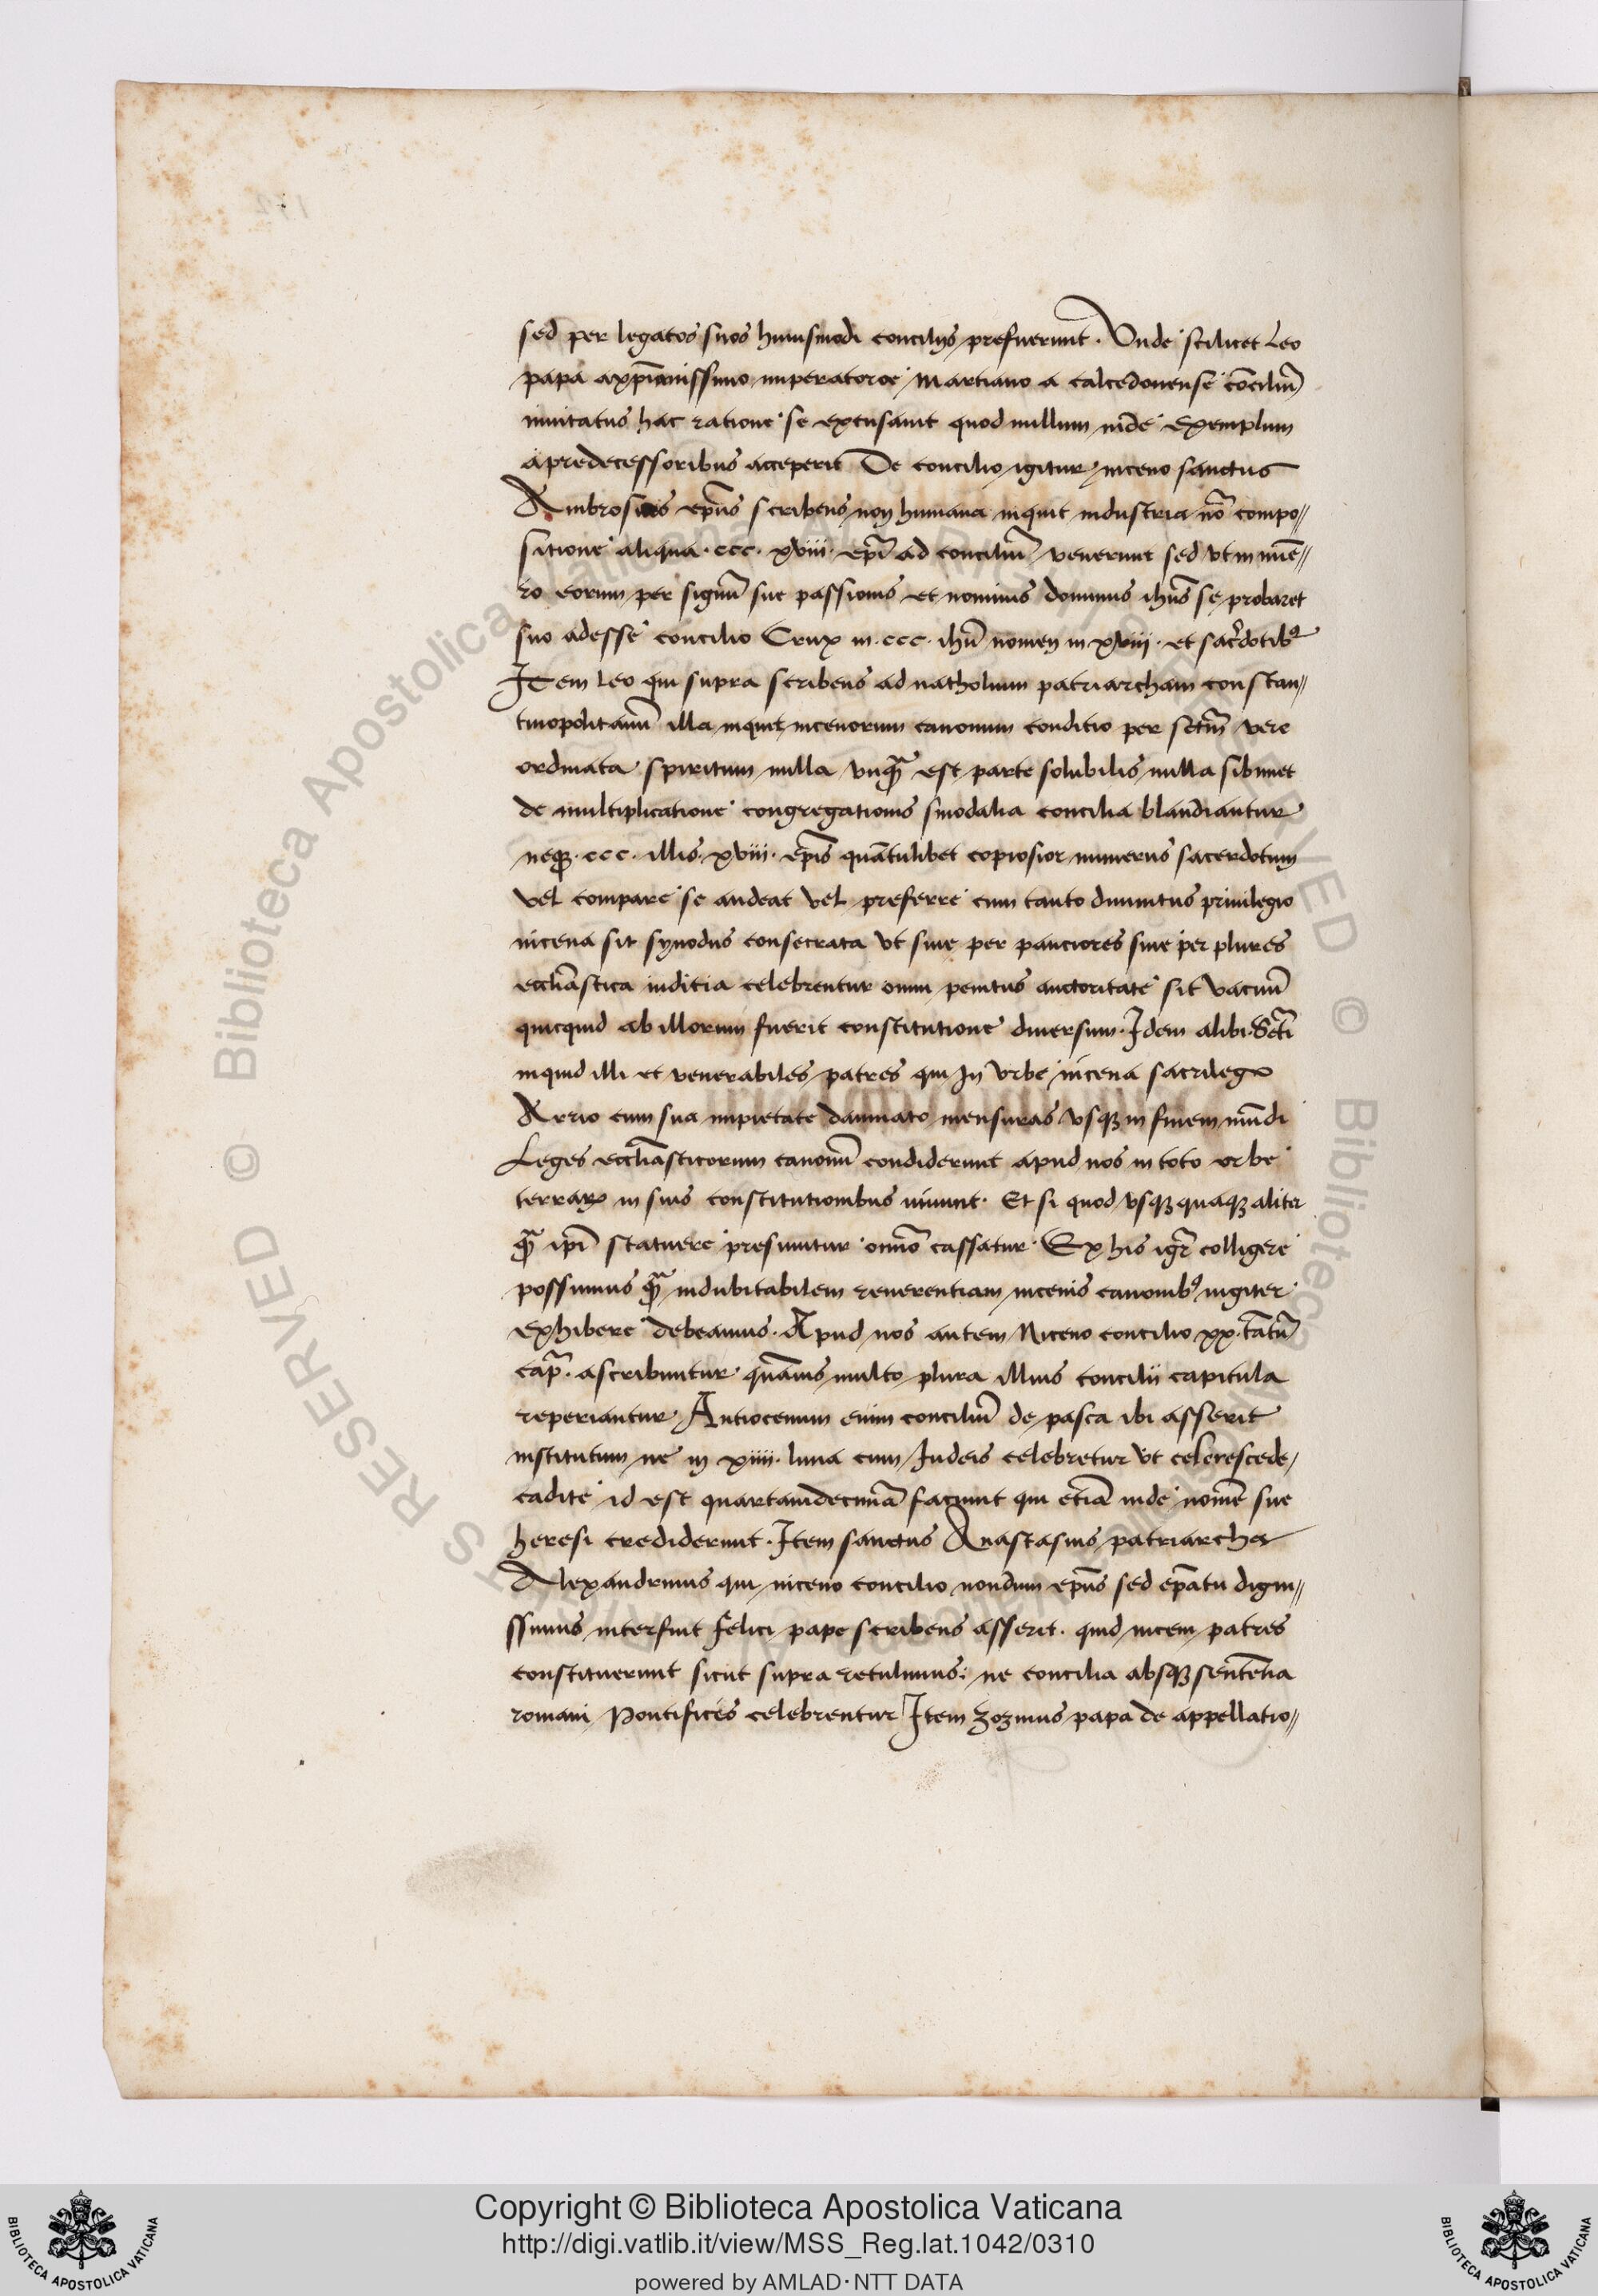 sed per legatos suos huiusmodi conciliis prefuerunt. Unde scilicet Leo
papa axp̄ianissimo imperatoroe Martiano a calcedonense cōciliū
inuitatus hac ratione se excusauit quod nullum inde exemplum
apredecessoribus acceperit De concilio igitur niceno sanctus
Ambrosius ep̄us scribens non humana inquit industria nō compo//
sitione aliqua .ccc. xviii. ep̄i ad conciliū venerunt sed vt in nūe//
ro eorum per signū sue passionis et nominis dominus ihūs se probaret
suo adesse concilio Crux in .ccc. ihū nomen in xviii. et sac̄dotibꝰ
Item Leo qui supra scribens ad natholium patriarcham constan//
tinopolitanū illa inquit nicenorum canonum conditio per sctm̄ vere
ordinata spiritum nulla vnqꝫ̄ est parte solubilis nulla sibimet
de multiplicatione congregationis sinodalia concilia blandiantur
neqꝫ .ccc. illis xviii. ep̄is quātulibet copiosior numerus sacerdotum
vel compare se audeat vel preferre cum tanto diuinitus priuilegio
nicena sit synodus consecrata vt siue per pauciores siue per plures
eccliāstica iuditia celebrentur omni penitus auctoritate sit vacuū
quicquid ab illorum fuerit constitutione diuersum. Idem alibi. Sctī
inquid illi et venerabiles patres qui in vrbe nicena sacrilego
Arrio cum sua impietate damnato mensuras vsqꝫ in finem mūdi
Leges eccliāsticorum canonū condiderunt apud nos in toto orbe
terraꝝ in suis constitutionibus uiuunt. Et si quod vsqꝫ quaqꝫ aliter
qꝫ̄ ip̄i statuere presumitur omīo cassatur. Ex his igr̄ colligere
possumus qꝫ̄ indubitabilem reuerentiam nicenis canonibꝰ iugiter
exhibere debeamus. Apud nos autem Niceno concilio xx. tātū
cap̄. ascribuntur quāuis multo plura illius concilii capitula
reperiantur. Antiocenum enim conciliū de pasca ibi asserit
institutum ne in xiiii. luna cum Iudeis celebretur vt celerescede/
cadite id est quartamdecimā faciunt qui etiā inde nomē sue
heresi crediderunt. Item sanctus Anastasius patriarcha
Alexandrinus qui niceno concilio nondum ep̄us sed ep̄atu digni//
ssimus interfuit felici pape scribens asserit. quid niceni patres
constituerunt sicut supra retulimus: ne concilia absqꝫ sententia
romani Pontifices celebrentur Item Zozimus papa de appellatio//
Copyright © Biblioteca Apostolica Vaticana
http://digi.vatlib.it/view/MSS_Reg.lat.1042/0310
powered by AMLAD·NTT DATA
BIBLIOTECA APOSTOLICA VATICANA
BIBLIOTECA APOSTOLICA VATICANA